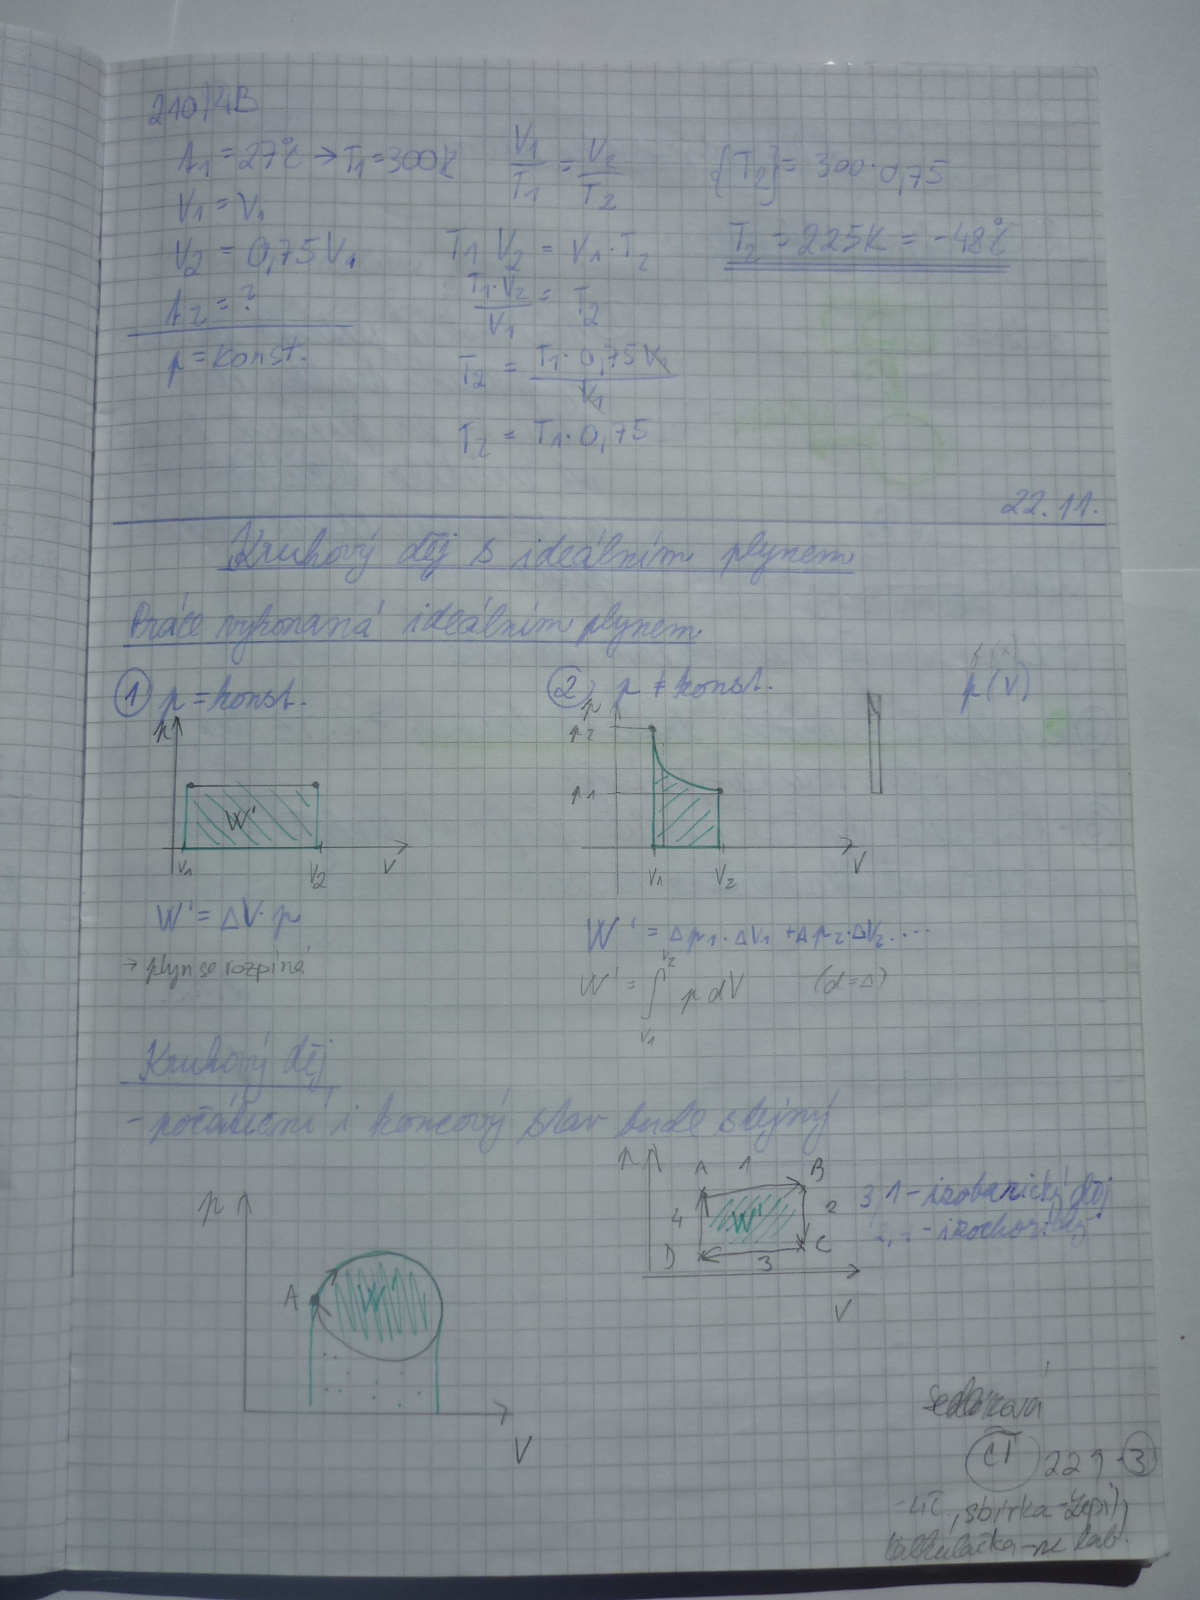 210/4B
t1 = 27°C → T1 = 300K
V1 = V1
V2 = 0,75 V1
t2 = ?
p = konst.
V1/T1 = V2/T2
T1 V2 = V1 · T2
T1 · V2 / V1 = T2
T2 = T1 · 0,75 V1 / V1
T2 = T1 · 0,75
{T2} = 300 · 0,75
T2 = 225K = -48°C
22.11.
Kruhový děj s ideálním plynem
Práce vykonaná ideálním plynem
1 p = konst.
p
W'
V1 V2 V
W' = ΔV · p
→ plyn se rozpíná
2) p ≠ konst.
p(V)
p
p2
p1
V1 V2 V
W' = Δp1 · ΔV1 + Δp2 · ΔV2 ....
W' = ∫ V1 V2 p dV (d = Δ)
Kruhový děj
- počáteční i koncový stav bude stejný
p
A
W'
V
A 1 B
4 W' 2
D 3 C
V
3,1 - izobarický děj
- izochorický
Sedláková
ČT 229 - 3
kalkulačka